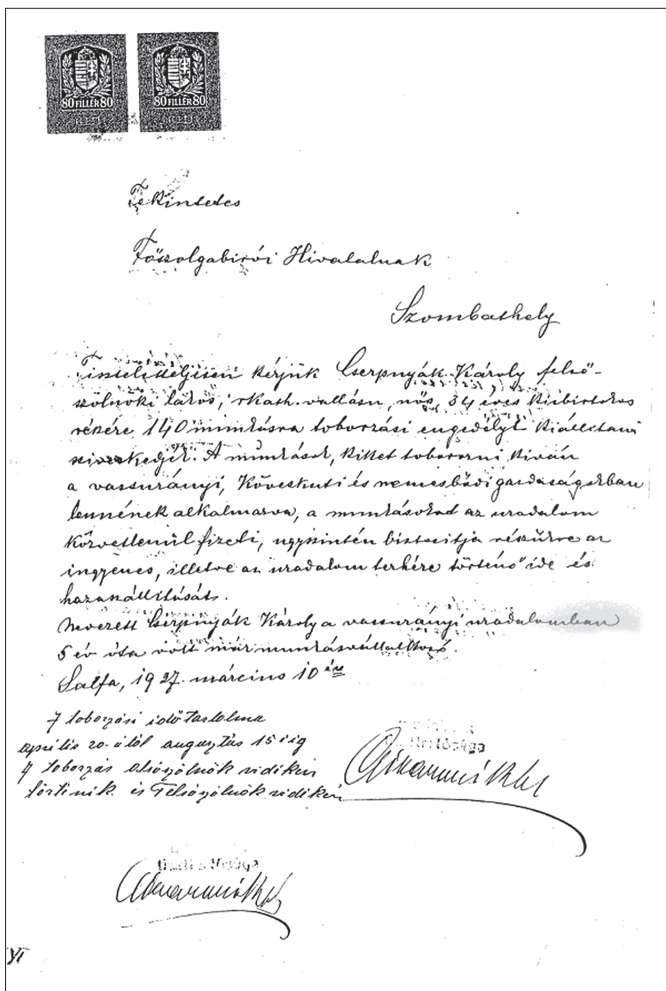 80 FILLÉR 80
80 FILLÉR 80
Tekintetes
Főszolgabirói Hivatalnak
Szombathely
Tiszteletteljesen kérjük Cserpnyák Károly felső-
szölnöki lakos, rkath. vallásu, nős, 34 éves kisbirtokos
részére 140 munkásra toborzási engedélyt kiállitani
sziveskedjék. A munkások, kiket toborozni kiván
a vassurányi, köveskuti és nemesbődi gazdaságokban
lennének alkalmazva, a munkásokat az uradalom
közvetlenül fizeti, ugyszintén biztositja részükre az
ingyenes, illetve az uradalom terhére történő ide és
hazaszállitását.
Nevezett Cserpnyák Károly a vassurányi uradalomban
5 év óta volt már munkásvállalkozó.
Salfa, 1927. március 10 én
A toborzási idő tartalma
április 20-ától augusztus 15 éig
A toborzás alsószölnök vidékén
történik és Felsőszölnök vidékén
XI